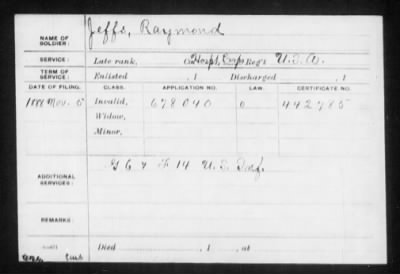 NAME OF SOLDIER: Jeffs, Raymond
SERVICE: Late rank, Co. Hospt, Corps Reg't U.S.A.
TERM OF SERVICE: Enlisted , 1 Discharged , 1
DATE OF FILING. CLASS. APPLICATION NO. LAW. CERTIFICATE NO.
1888 Nov. 5 Invalid, 678040 0 442785
Widow,
Minor,
ADDITIONAL SERVICES: G 6 & F 14 U.S. Inf.
REMARKS:
Died , 1 , at